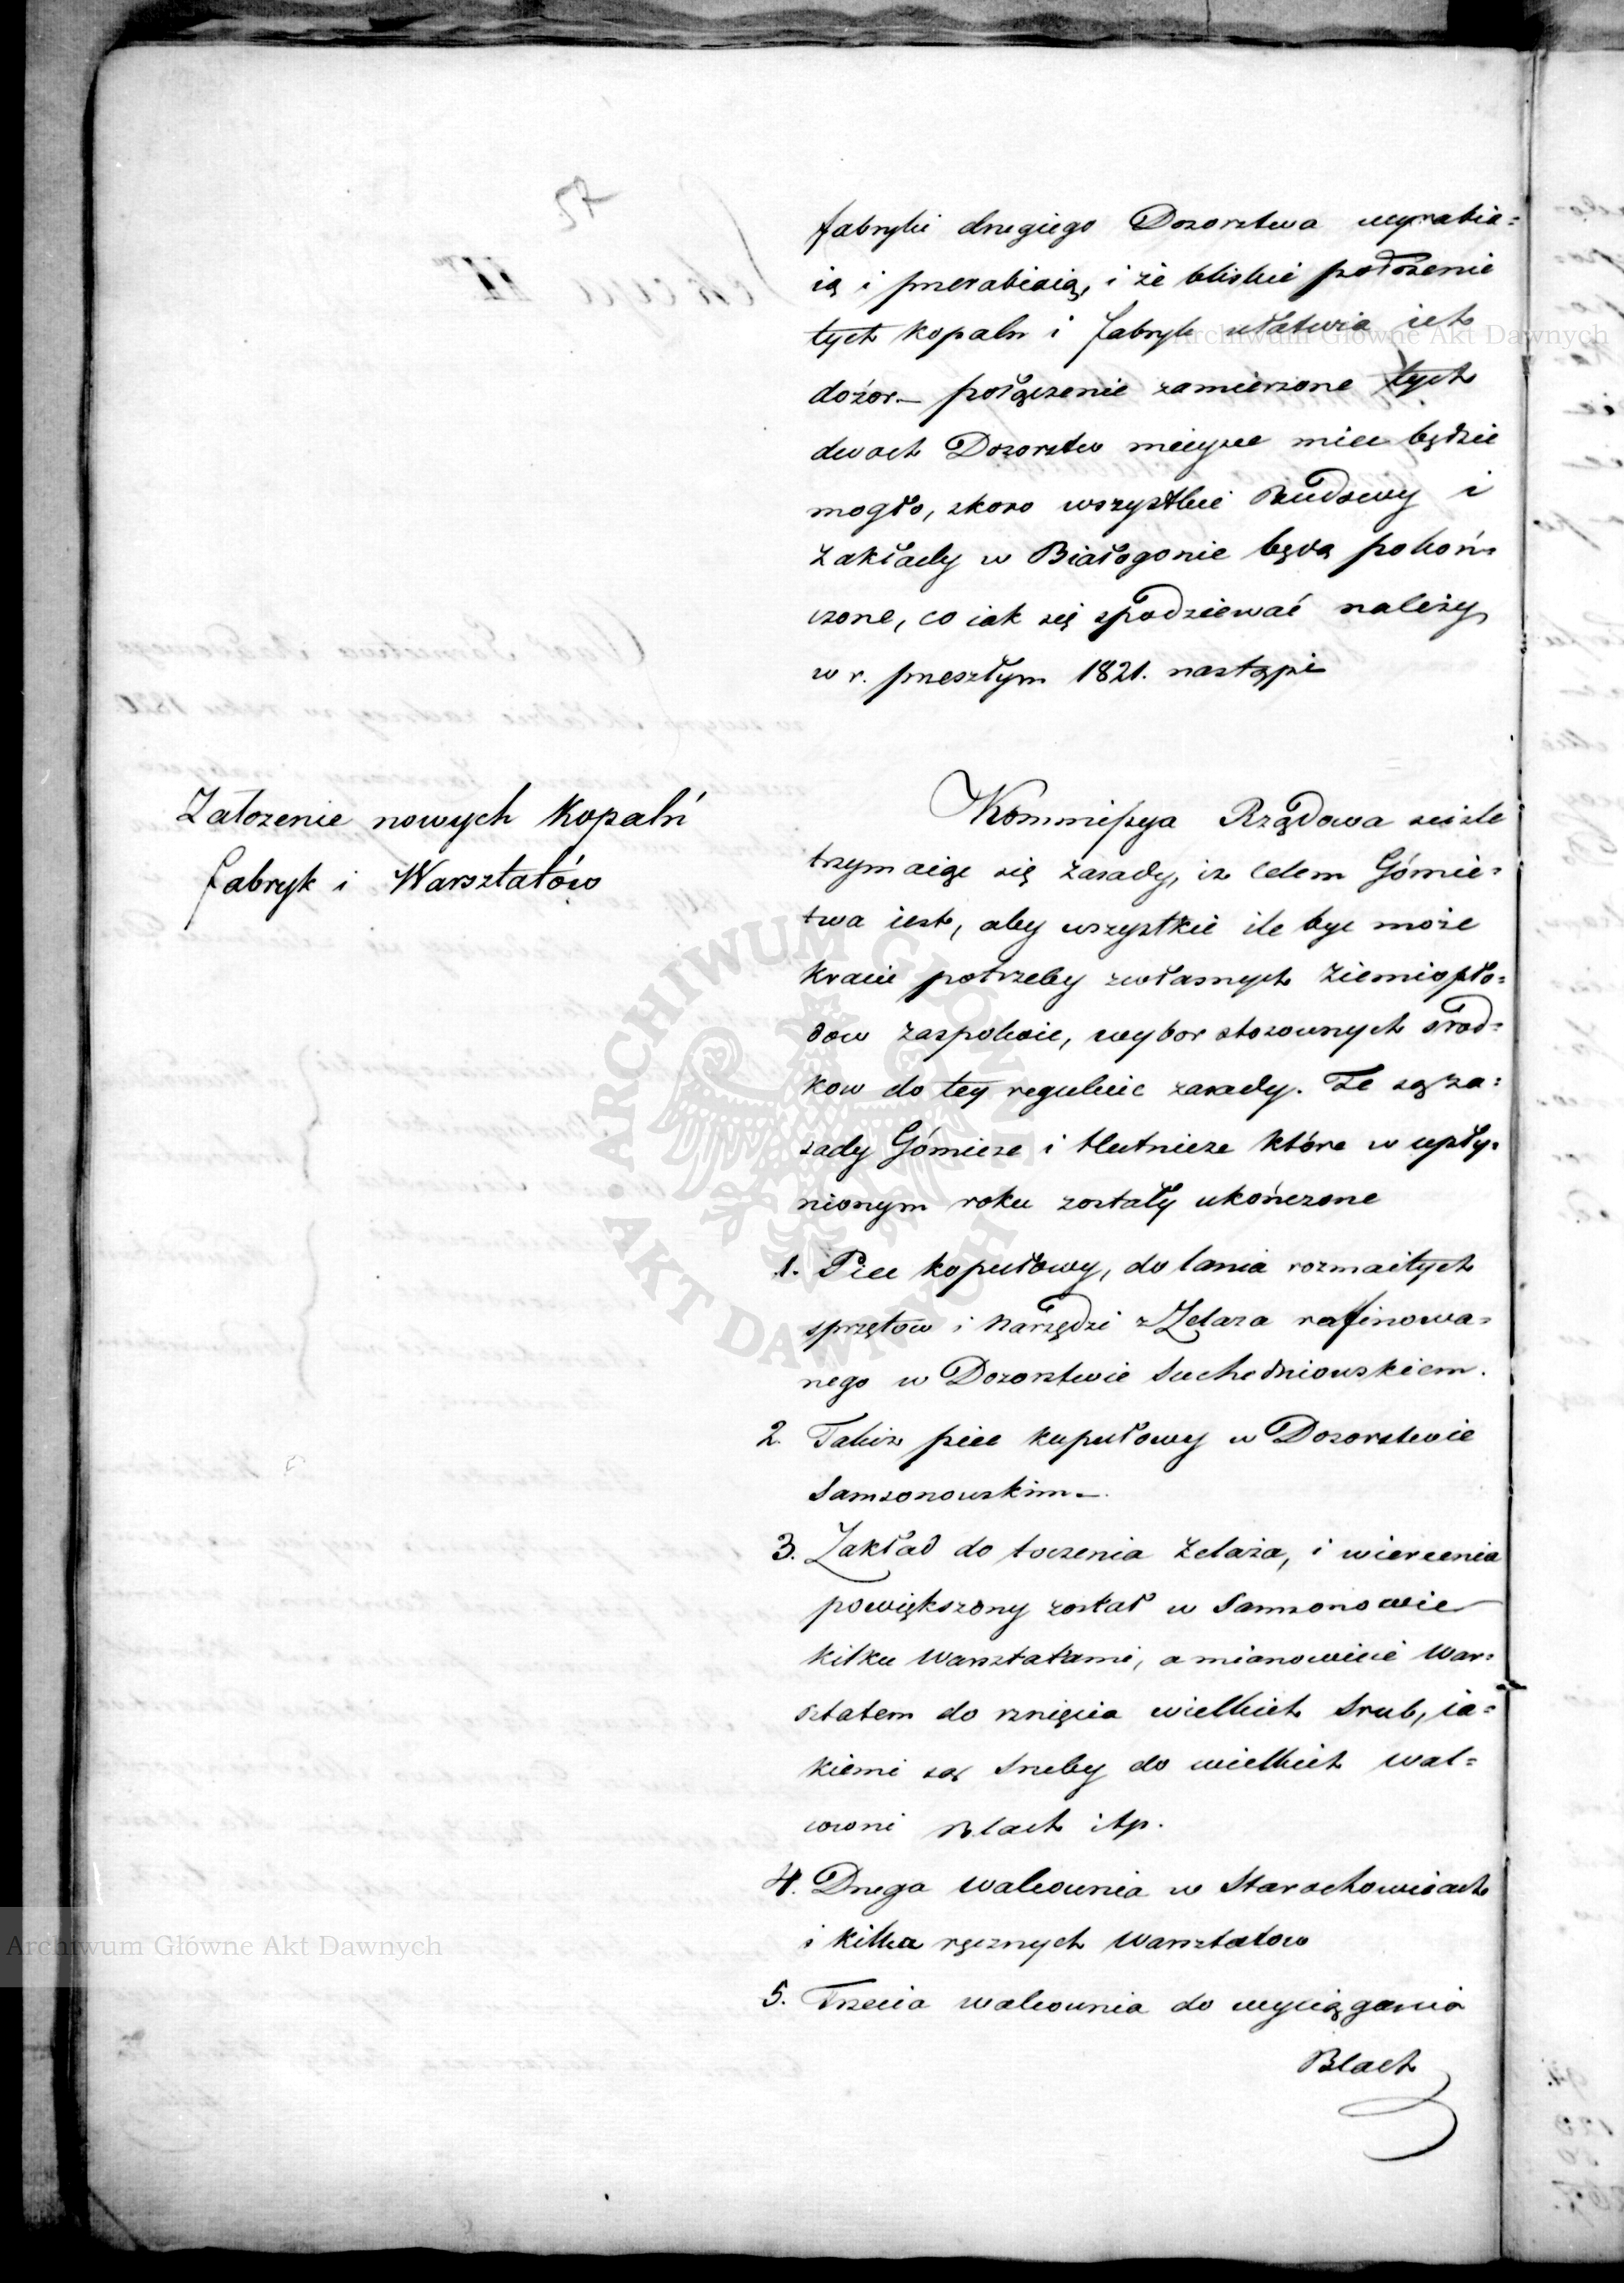 fabryki drugiego Dozorstwa wyrabia=
ią i przerabiaią, i że bliskie położenie
tych kopalń i fabryk ułatwia ich
dozór – połączenie zamierzone tych
dwoch Dozorstw mieysce miec będzie
mogło, skoro wszystkie Budowy i
Zakłady w Białogonie będą pokoń=
czone, co iak się spodziewać należy
w r. przeszłym 1821. nastąpi
Załozenie nowych Kopalń
fabryk i Warsztatów
Kommissya Rządowa scisle
trzymaiąc się zasady, iz celem Górnic=
twa iest, aby wszystkie ile byc może
kraiu potrzeby zwłasnych Ziemiopło=
dow zaspokoic, wybor stosownych srod=
kow do tey reguluie zasady. Te są za=
sady Górnicze i Hutnicze które w upły=
nionym roku zostały ukończone
1. Piec kopułowy, do lania rozmaitych
sprzętow i Narzędzi z Zelaza rafinowa=
nego w Dozorstwie Suchedniowskiem.
2. Takiz piec kupułowy w Dozorstwie
Samsonowskim –.
3. Zakład do toczenia Zelaza, i wiercenia
powiększony został w Samsonowie
kilku Warsztatami, a mianowicie War=
sztatem do rznięcia wielkich Srub, ia=
kiemi są Sruby do wielkich wal=
cowni Blach itp.
4. Druga walcownia w Starachowicach
i kilka ręcznych Warsztatow
5. Trzecia walcownia do wyciągania
Blach
Archiwum Główne Akt Dawnych
Archiwum Główne Akt Dawnych
ARCHIWUM GŁÓWNE AKT DAWNYCH